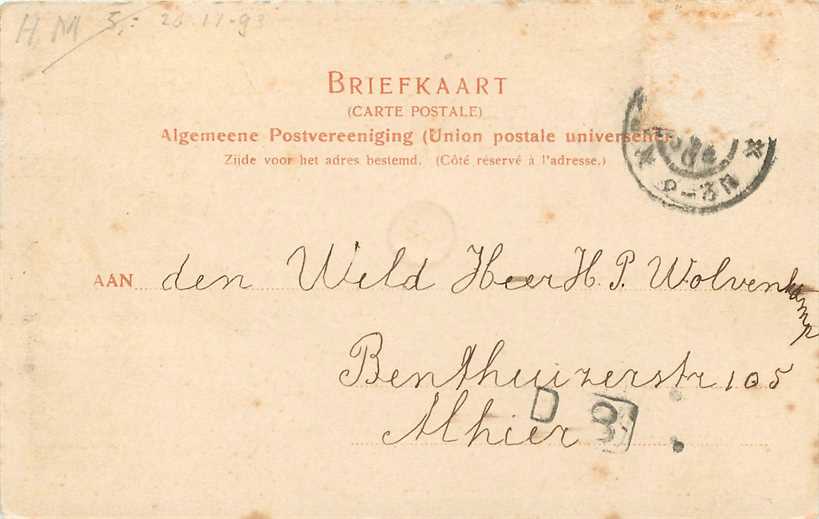 H M 5,- 23-11-93
BRIEFKAART
(CARTE POSTALE)
Algemeene Postvereeniging (Union postale universelle)
Zijde voor het adres bestemd. (Côté réservé à l'adresse.)
2-3N
AAN den Weld Heer H. P. Wolvenkamp
Benthuizerstr 105
Alhier
D 8